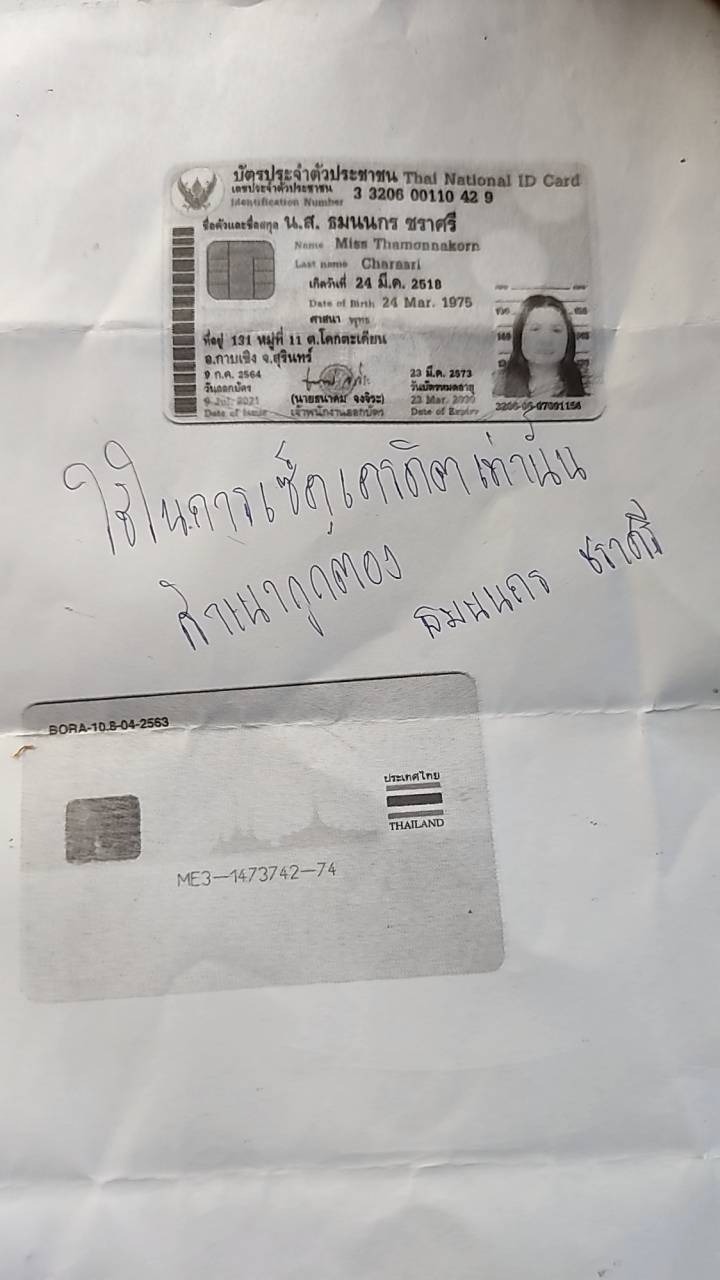 บัตรประจำตัวประชาชน Thai National ID Card
เลขประจำตัวประชาชน 3 3206 00110 42 9
Identification Number
ชื่อตัวและชื่อสกุล น.ส. ธมนนกร ชราศรี
Name Miss Thamonnakorn
Last name Charasri
เกิดวันที่ 24 มี.ค. 2518
Date of Birth 24 Mar. 1975
ศาสนา พุทธ
ที่อยู่ 131 หมู่ที่ 11 ต.โคกตะเคียน
อ.กาบเชิง จ.สุรินทร์
9 ก.ค. 2564
วันออกบัตร
9 Jul. 2021
Date of Issue
(นายธนาคม จงจิระ)
เจ้าพนักงานออกบัตร
23 มี.ค. 2573
วันบัตรหมดอายุ
23 Mar. 2030
Date of Expiry
3206-05-07091156
ใช้ในการเช็คเครดิตเท่านั้น
สำเนาถูกต้อง
ธมนนกร ชราศรี
BORA-10.6-04-2563
ประเทศไทย
THAILAND
ME3-1473742-74